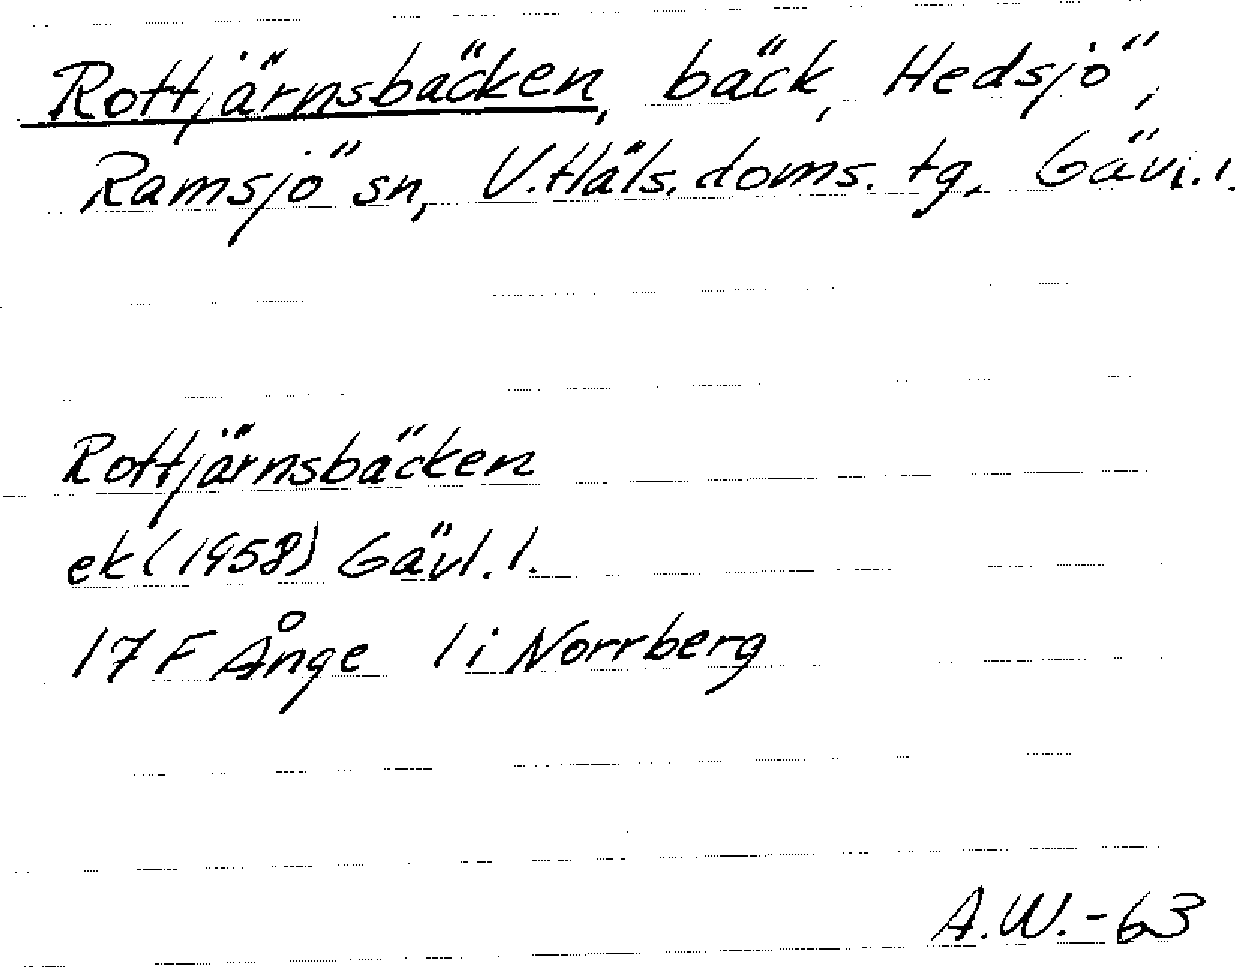 Rottjärnsbäcken, bäck, Hedsjö,
Ramsjö sn, V.Häls.doms.tg, Gävl.l.
Rottjärnsbäcken
ek (1958) Gävl.l.
17 F Ånge 1 i Norrberg
A.W.-63